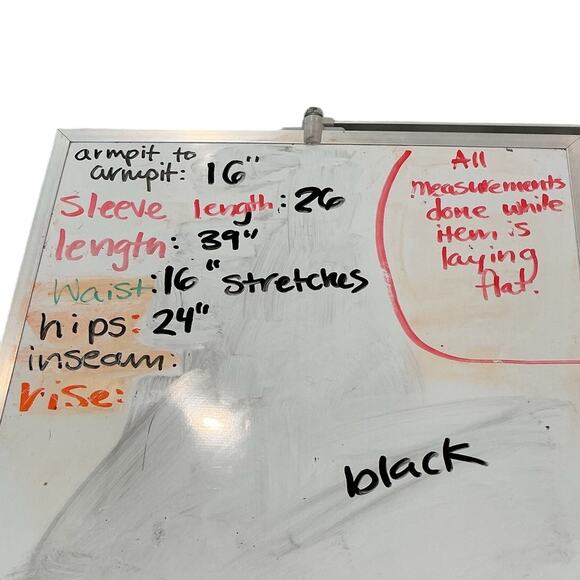 armpit to
armpit: 16"
Sleeve length: 26
length: 39"
Waist: 16" stretches
hips: 24"
inseam:
rise:
All
measurements
done while
item is
laying
flat.
black